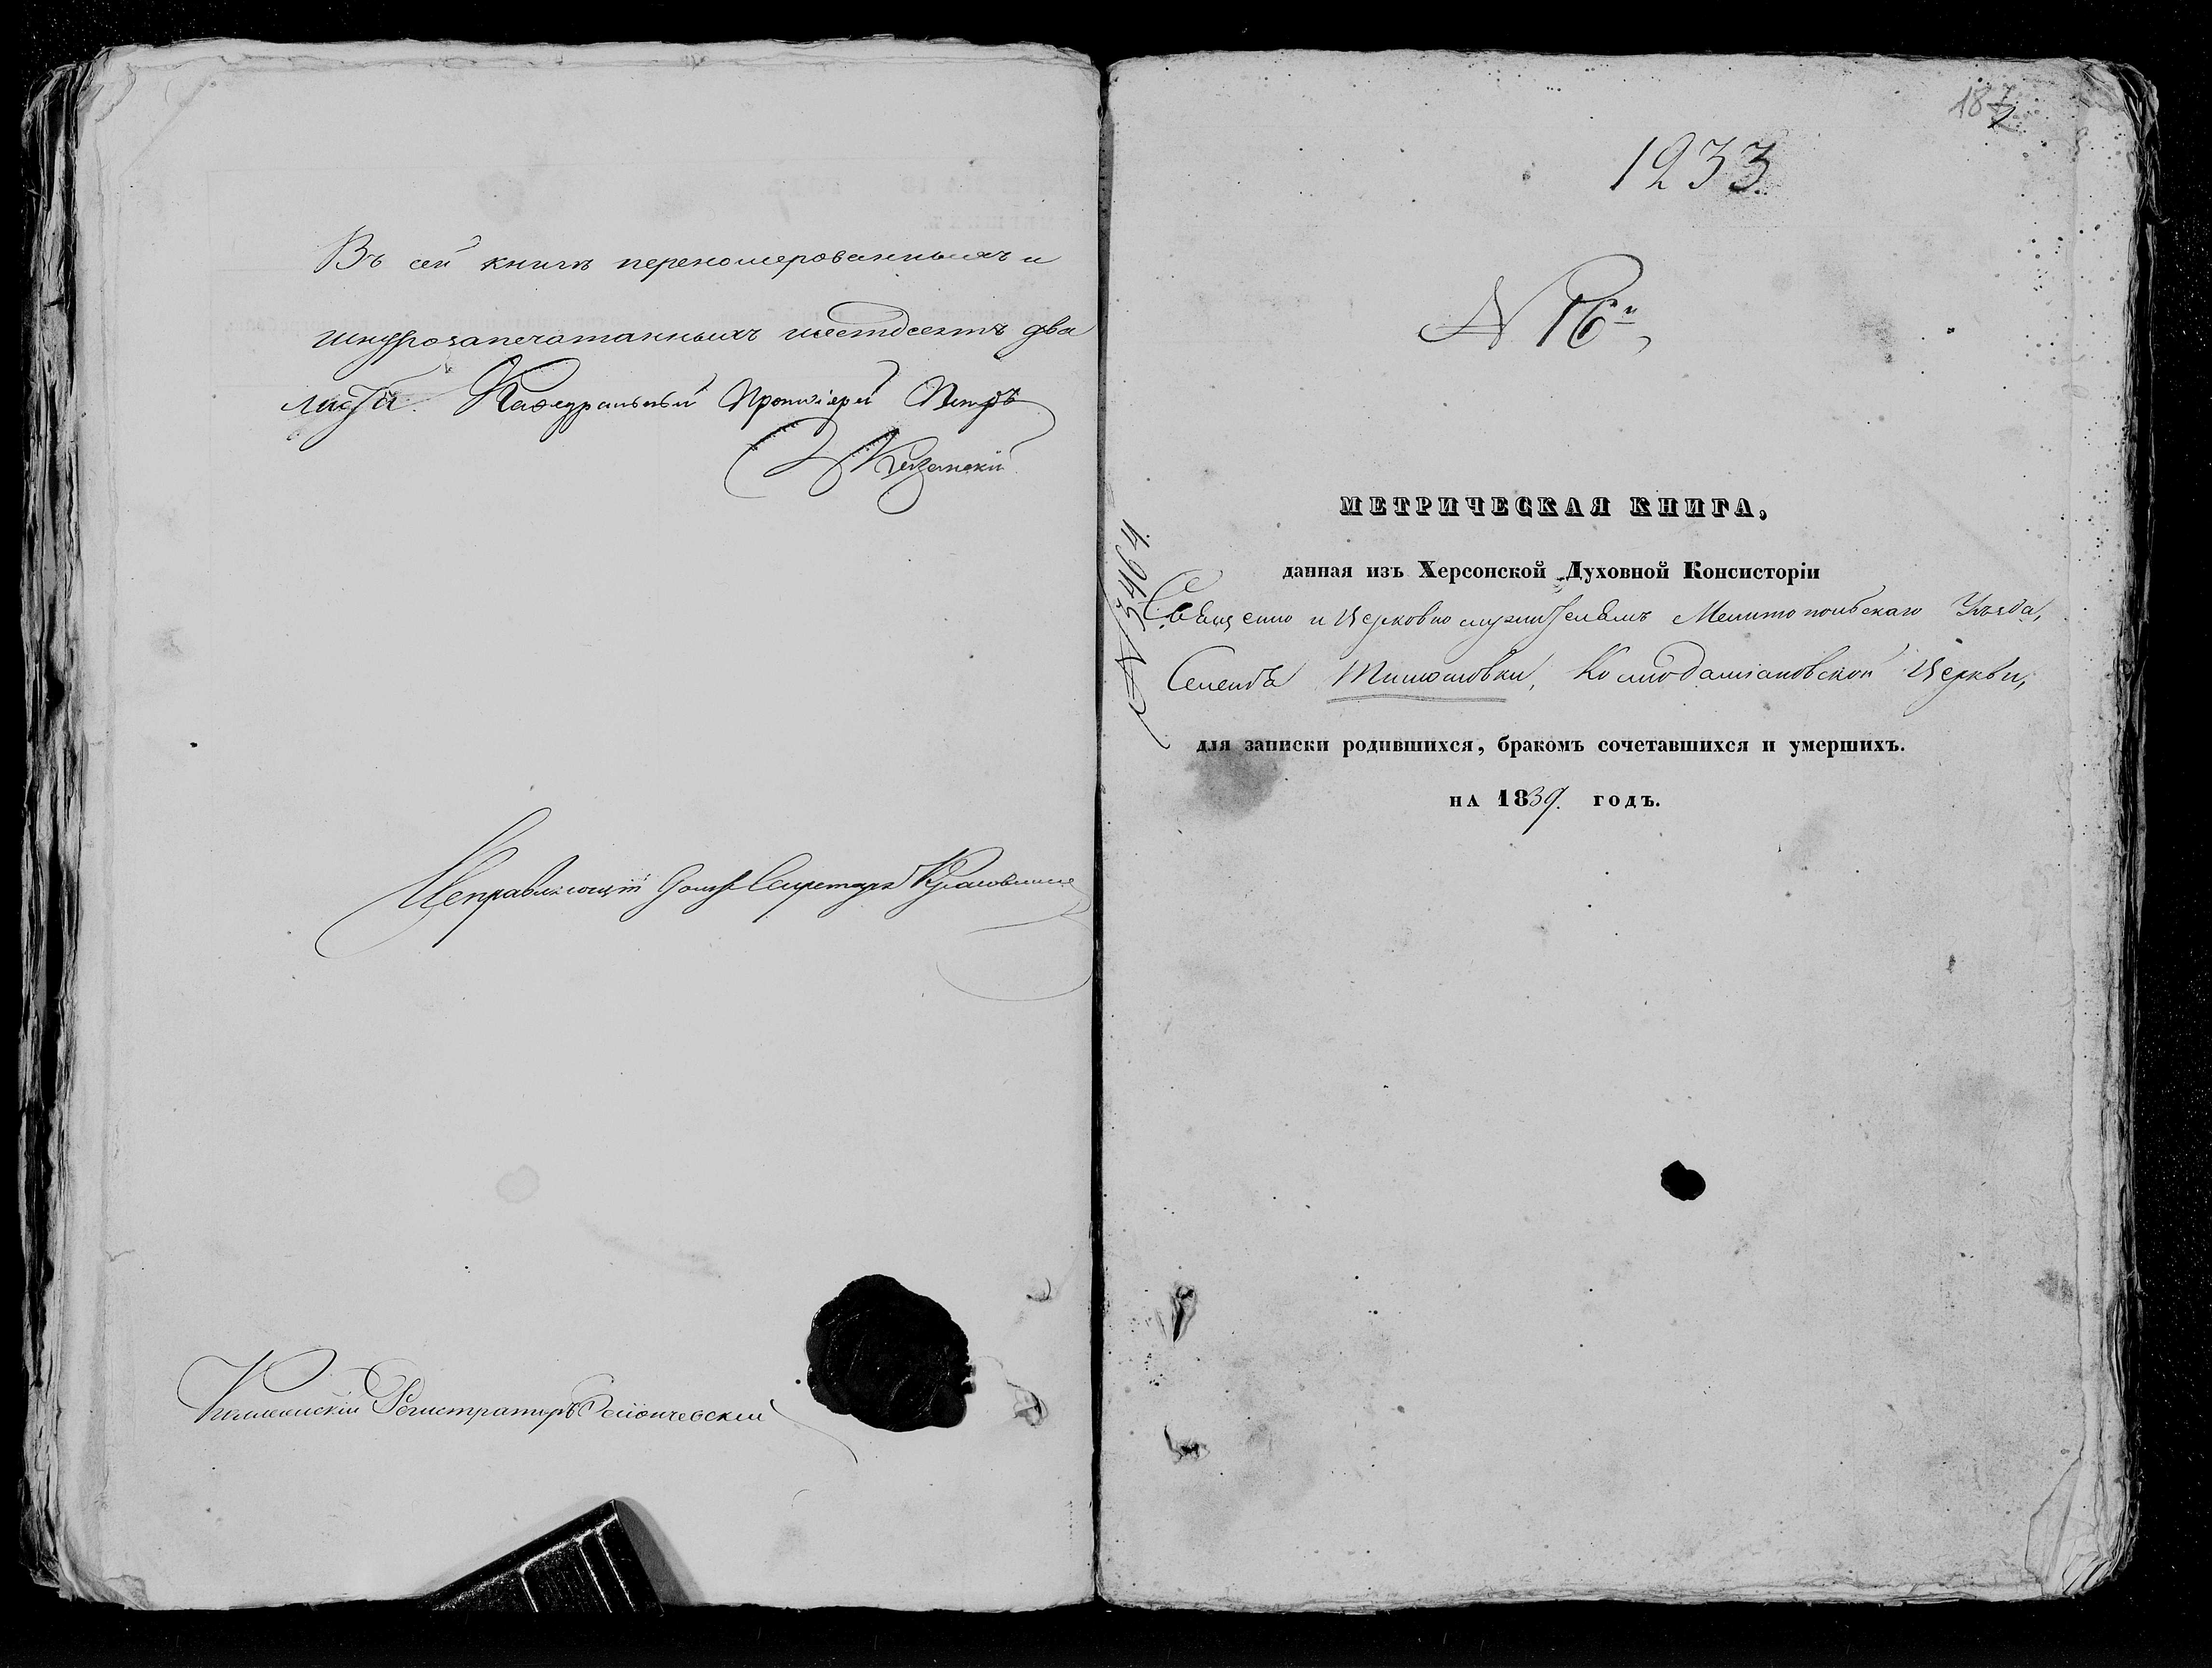 Въ сей книгѣ переномерованныхъ и
шнурозапечатанныхъ шестдесятъ два
листа. Каѳедральный Протоіерей Петръ
Исправляющій должн Секретаря
Коллежскій Регистраторъ
187
1233
N 16й
МЕТРИЧЕСКАЯ КНИГА,
данная изъ Херсонской Духовной Консисторіи
Священно и Церковно служителямъ Мелитопольскаго Уѣзда,
Селенія Тимошовки, Космодаміановской Церкви,
для записки родившихся, бракомъ сочетавшихся и умершихъ.
НА 1839. ГОДЪ.